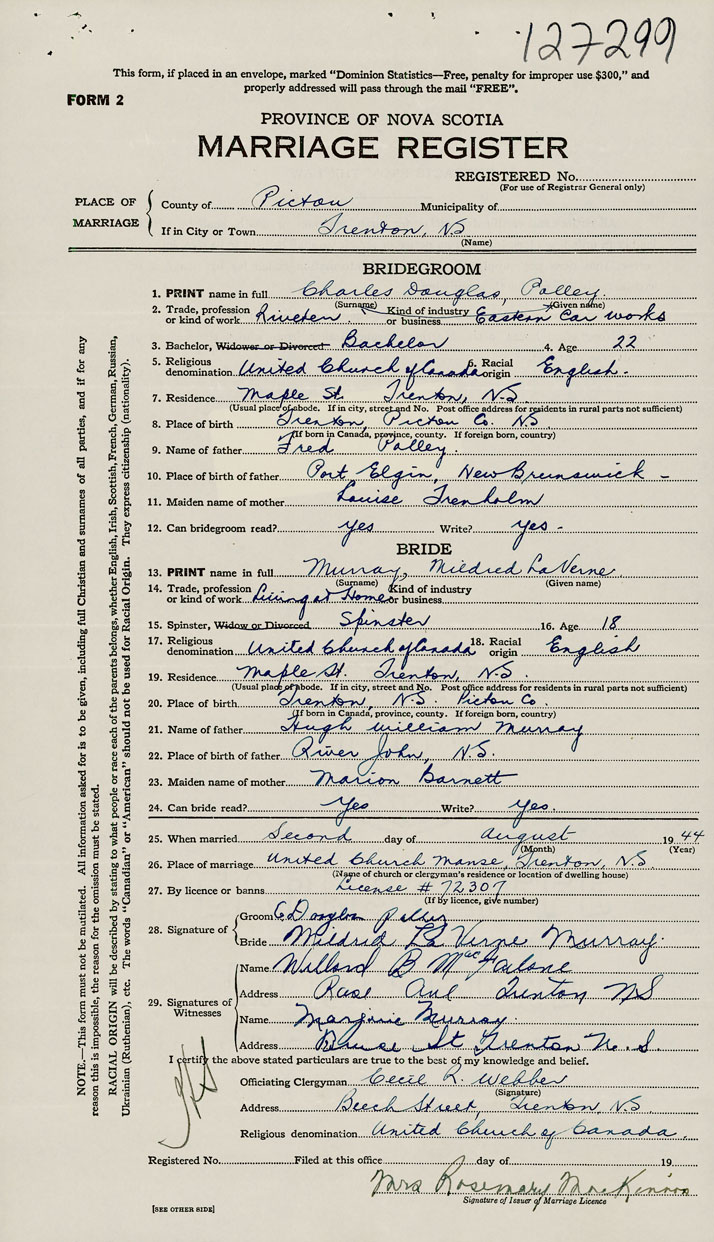 127299
This form, if placed in an envelope, marked "Dominion Statistics—Free, penalty for improper use $300," and
properly addressed will pass through the mail "FREE".
FORM 2
PROVINCE OF NOVA SCOTIA
MARRIAGE REGISTER
REGISTERED No.
(For use of Registrar General only)
PLACE OF MARRIAGE
County of Pictou Municipality of
If in City or Town Trenton, N.S
(Name)
BRIDEGROOM
1. PRINT name in full Charles Douglas, Polley.
(Surname) (Given name)
2. Trade, profession or kind of work Riveter Kind of industry or business Eastern Car works
3. Bachelor, Widower or Divorced Bachelor 4. Age 22
5. Religious denomination United Church of Canada 6. Racial origin English.
7. Residence Maple St. Trenton, N.S.
(Usual place of abode. If in city, street and No. Post office address for residents in rural parts not sufficient)
8. Place of birth Trenton, Pictou Co. N.S
(If born in Canada, province, county. If foreign born, country)
9. Name of father Fred Polley.
10. Place of birth of father Port Elgin, New Brunswick -
11. Maiden name of mother Louise Trenholm
12. Can bridegroom read? yes Write? yes -
BRIDE
13. PRINT name in full Murray, Mildred LaVerne
(Surname) (Given name)
14. Trade, profession or kind of work Living at Home Kind of industry or business
15. Spinster, Widow or Divorced Spinster 16. Age 18
17. Religious denomination United Church of Canada 18. Racial origin English
19. Residence Maple St. Trenton, N.S.
(Usual place of abode. If in city, street and No. Post office address for residents in rural parts not sufficient)
20. Place of birth Trenton, N.S. Pictou Co.
(If born in Canada, province, county. If foreign born, country)
21. Name of father Hugh William Murray
22. Place of birth of father River John, N.S.
23. Maiden name of mother Marion Barnett
24. Can bride read? Yes Write? Yes.
25. When married Second day of August 1944
(Month) (Year)
26. Place of marriage United Church Manse, Trenton, N.S.
(Name of church or clergyman's residence or location of dwelling house)
27. By licence or banns License # 72307
(If by licence, give number)
28. Signature of
Groom C Douglas Polley
Bride Mildred La Verne Murray.
29. Signatures of Witnesses
Name Willard B MacFarlane
Address Rase Ave Trenton NS
Name Marjorie Murray.
Address St Trenton N. S.
I certify the above stated particulars are true to the best of my knowledge and belief.
Officiating Clergyman Cecil R. Webber
(Signature)
Address Beech Street, Trenton, N.S.
Religious denomination United Church of Canada.
Registered No. Filed at this office day of 19
Mrs Rosemary MacKinnon
Signature of Issuer of Marriage Licence
[SEE OTHER SIDE]
NOTE.—This form must not be mutilated. All information asked for is to be given, including full Christian and surnames of all parties, and if for any
reason this is impossible, the reason for the omission must be stated.
RACIAL ORIGIN will be described by stating to what people or race each of the parents belongs, whether English, Irish, Scottish, French, German, Russian,
Ukrainian (Ruthenian), etc. The words "Canadian" or "American" should not be used for Racial Origin. They express citizenship (nationality).